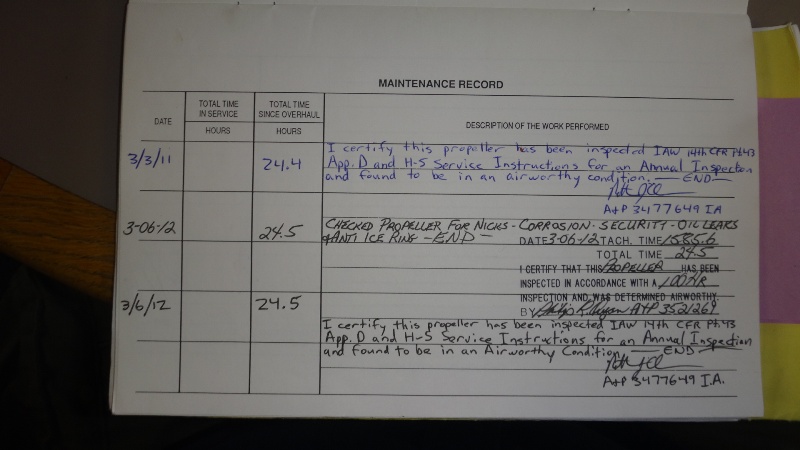 MAINTENANCE RECORD
DATE
TOTAL TIME
IN SERVICE
TOTAL TIME
SINCE OVERHAUL
DESCRIPTION OF THE WORK PERFORMED
HOURS
HOURS
3/3/11
24.4
I certify this propeller has been inspected IAW 14th CFR Pt.43
App. D and H-S Service Instructions for an Annual Inspection
and found to be in an airworthy condition. — END —
A+P 3477649 IA
3-06-12
24.5
CHECKED PROPELLER FOR NICKS - CORROSION - SECURITY - OIL LEAKS
& ANTI ICE RING - END -
DATE 3-06-12 TACH. TIME 1585.6
TOTAL TIME 24.5
I CERTIFY THAT THIS PROPELLER HAS BEEN
INSPECTED IN ACCORDANCE WITH A 100 HR
INSPECTION AND WAS DETERMINED AIRWORTHY.
BY A+P 3521269
3/6/12
24.5
I certify this propeller has been inspected IAW 14th CFR Pt.43
App. D and H-S Service Instructions for an Annual Inspection
and found to be in an Airworthy Condition. — END —
A+P 3477649 I.A.